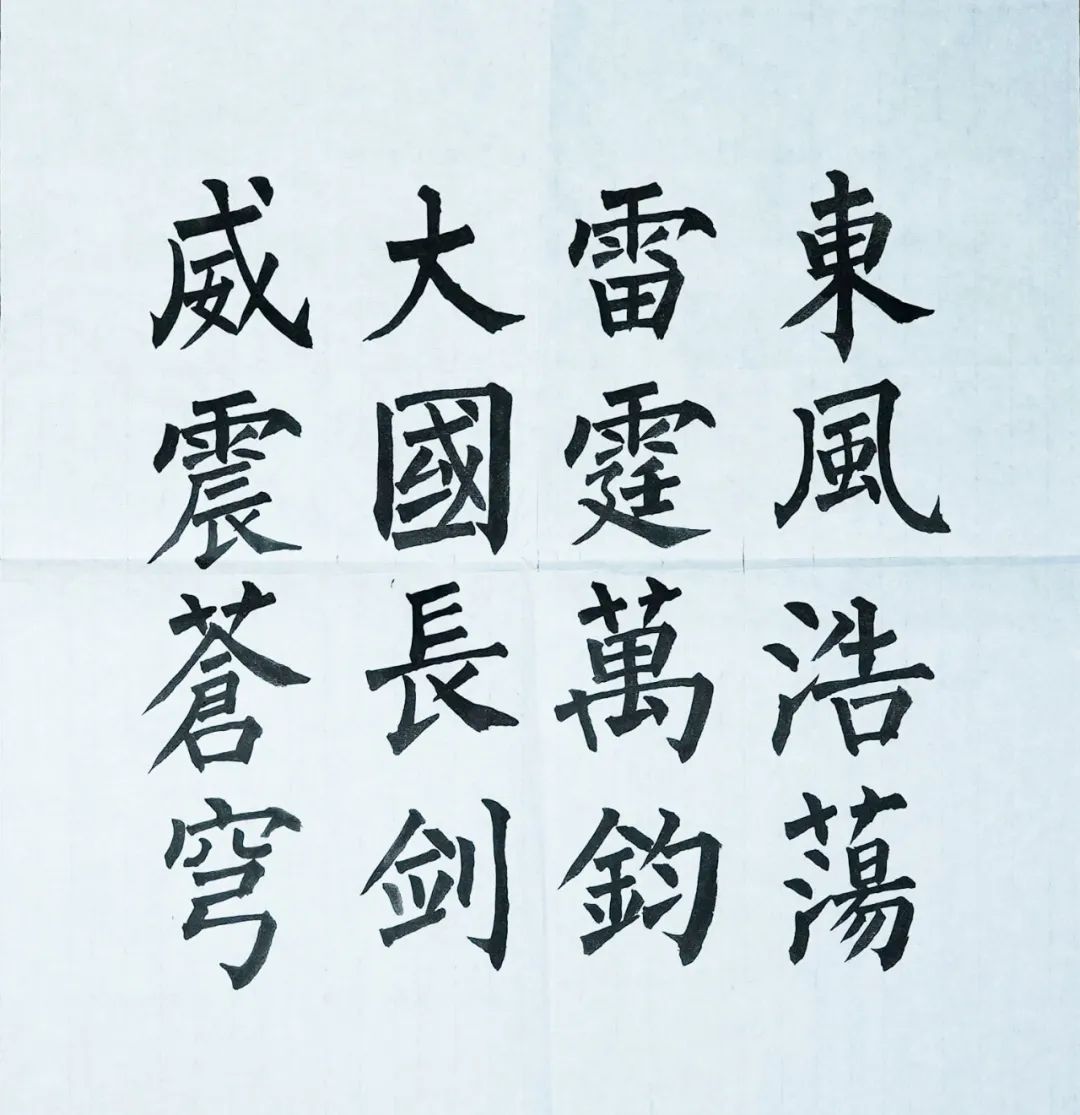 東風浩蕩
雷霆萬鈞
大國長剑
威震蒼穹